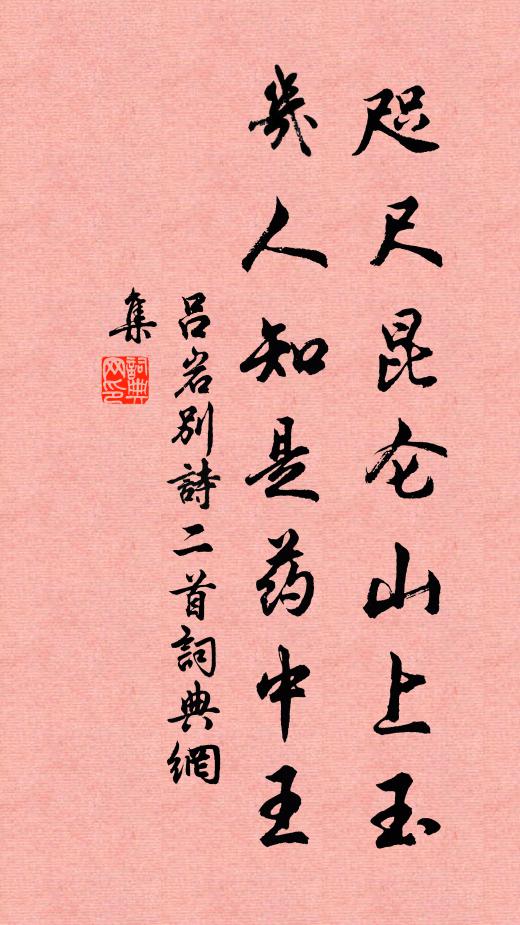 咫尺昆仑山上玉
几人知是药中王
吕岩别詩二首詞典網
集
詞典网印